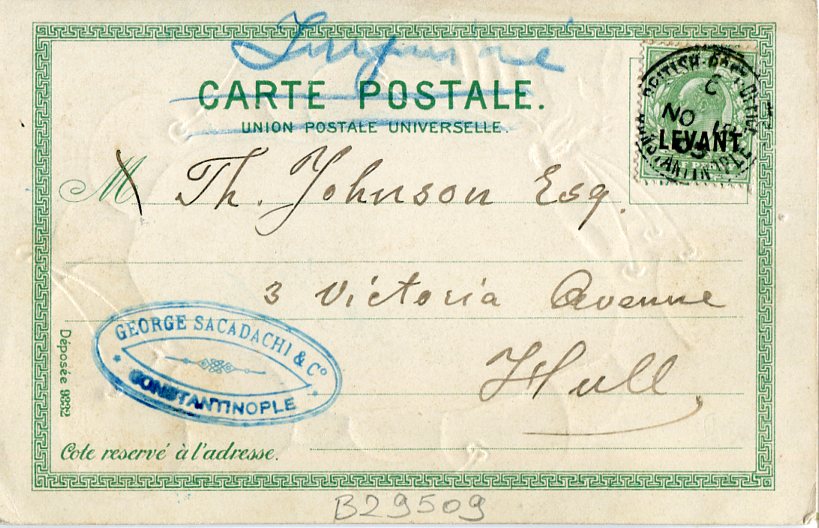 Imprimé
CARTE POSTALE.
UNION POSTALE UNIVERSELLE.
BRITISH POST OFFICE
C
NO
05
CONSTANTINOPLE
LEVANT
M
Th. Johnson Esq.
3 Victoria Avenue
Hull,
GEORGE SACADACHI & Cº
CONSTANTINOPLE
Déposée
Cote reservé à l'adresse.
B29509